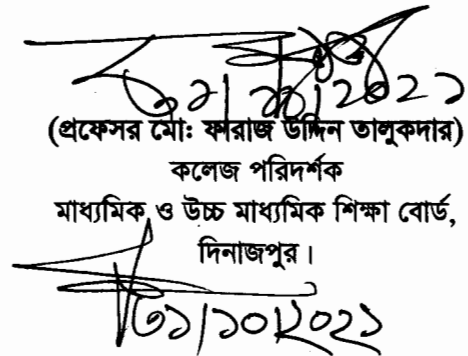 ৩১/১০/২০২১
(প্রফেসর মোঃ ফারাজ উদ্দিন তালুকদার)
কলেজ পরিদর্শক
মাধ্যমিক ও উচ্চ মাধ্যমিক শিক্ষা বোর্ড,
দিনাজপুর।
৩১/১০/২০২১